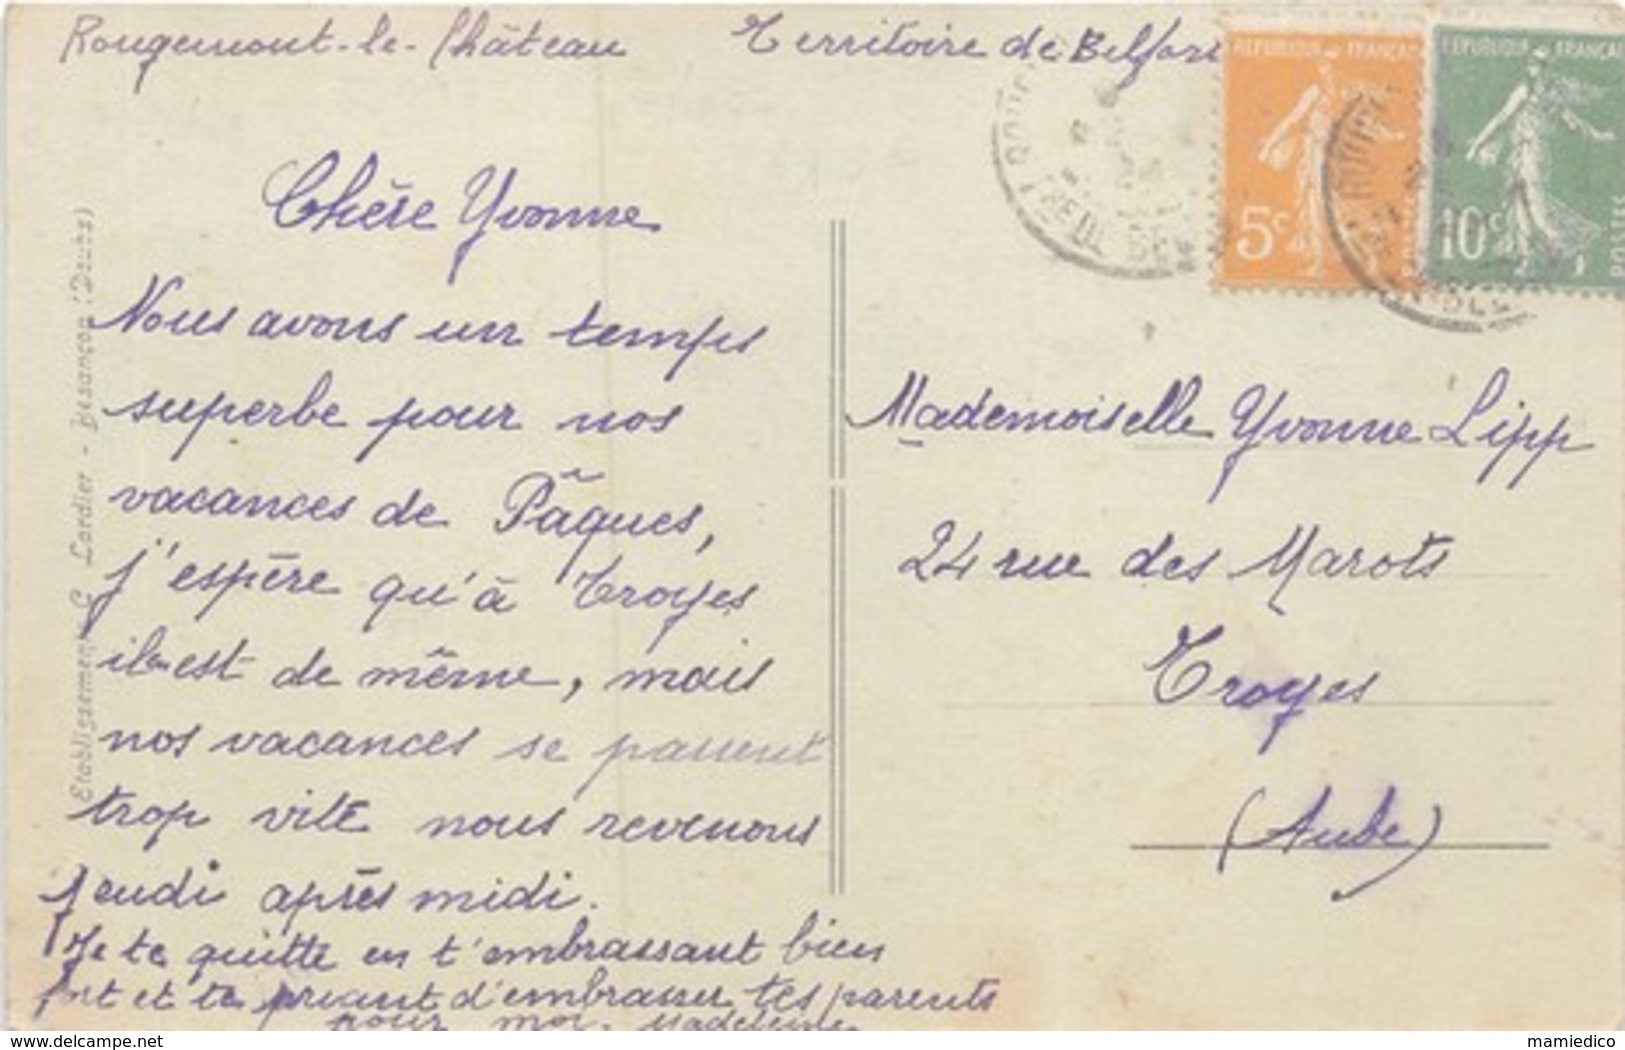 Rougemont-le-Château Territoire de Belfort
Chère Yvonne
Nous avons un temps
superbe pour nos
vacances de Pâques,
j'espère qu'à Troyes
il en est de même, mais
nos vacances se passent
trop vite nous revenons
Jeudi après midi.
Je te quitte en t'embrassant bien
fort et te priant d'embrasser tes parents
pour moi. Madeleine
Etablissement C. Lardier - Besançon (Doubs)
REPUBLIQUE FRANÇAISE
5c
REPUBLIQUE FRANÇAISE
10c
POSTES
Mademoiselle Yvonne Lipp
24 rue des Marots
Troyes
(Aube)
www.delcampe.net
mamiedico